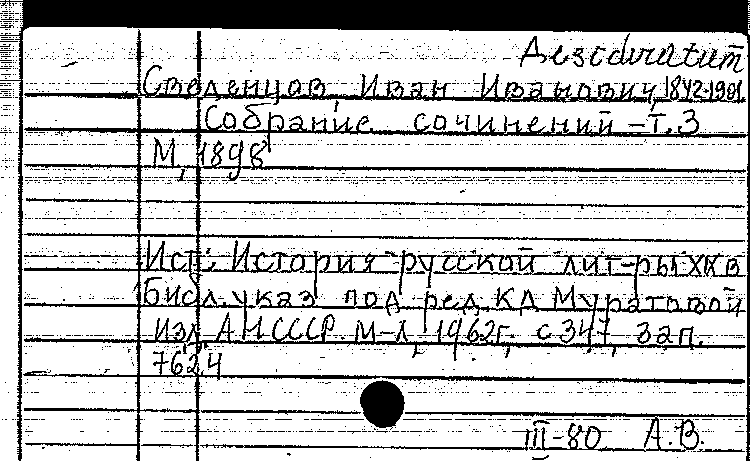 Desiduratum
Сведенцов, Иван Иванович, 1842-1901.
Собрание сочинений - т. 3
М, 1898
Ист: История русской лит-ры XIX в
библ. указ под ред. К.Д Муратовой
Изд. АН СССР. М-Л, 1962г, с 347, зап.
7624
III-80 А.В.